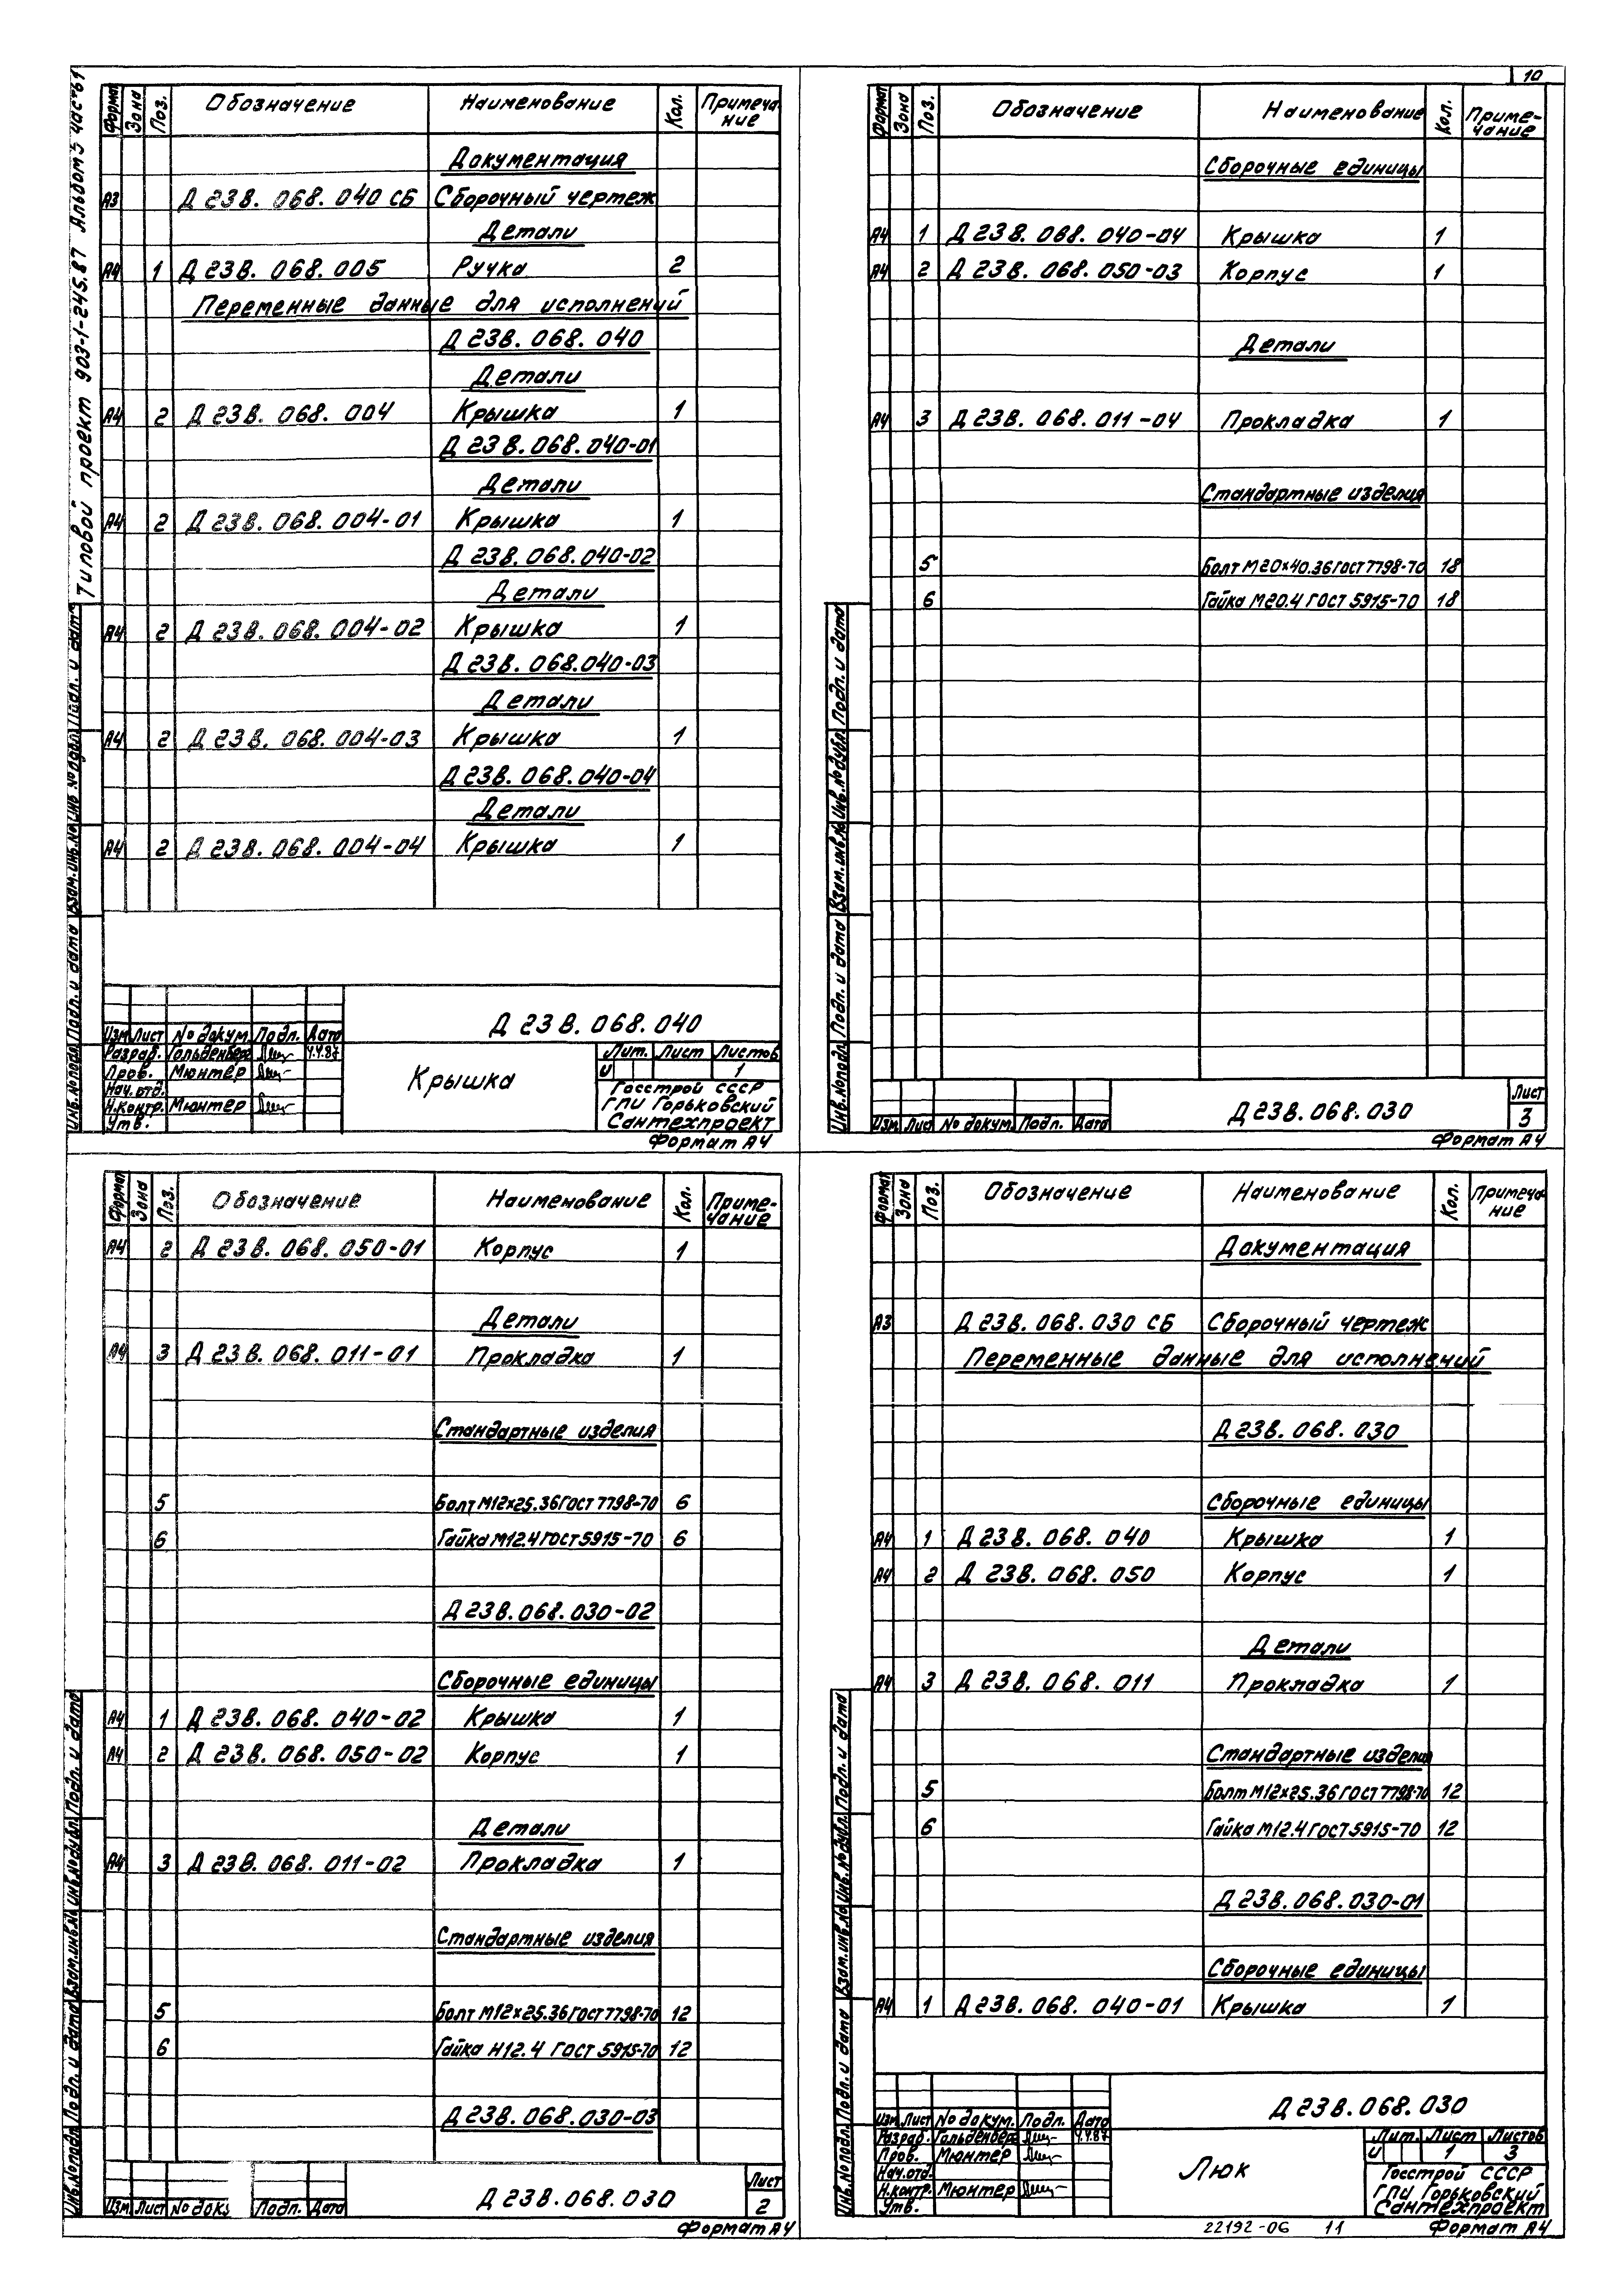 10
Типовой проект 903-1-245.87 Альбом 5 часть 1
Формат Зона Поз. Обозначение Наименование Кол. Примечание
Документация
А3 Д 23В. 068. 040 СБ Сборочный чертеж
Детали
А4 1 Д 23В. 068. 005 Ручка 2
Переменные данные для исполнений
Д 23В. 068. 040
Детали
А4 2 Д 23В. 068. 004 Крышка 1
Д 23В. 068. 040-01
Детали
А4 2 Д 23В. 068. 004-01 Крышка 1
Д 23В. 068. 040-02
Детали
А4 2 Д 23В. 068. 004-02 Крышка 1
Д 23В. 068. 040-03
Детали
А4 2 Д 23В. 068. 004-03 Крышка 1
Д 23В. 068. 040-04
Детали
А4 2 Д 23В. 068. 004-04 Крышка 1
Инв.№подл. Подп. и дата Взам.инв.№ Инв.№дубл. Подп. и дата
Д 23В. 068. 040
Изм Лист № докум. Подп. Дата
Разраб. Гольденберг 4.4.87
Пров. Мюнтер
Нач. отд.
Н.контр. Мюнтер
Утв.
Крышка
Лит. Лист Листов
И 1
Госстрой СССР
ГПИ Горьковский
Сантехпроект
Формат А4
Формат Зона Поз. Обозначение Наименование Кол. Примечание
Сборочные единицы
А4 1 Д 23В. 068. 040-04 Крышка 1
А4 2 Д 23В. 068. 050-03 Корпус 1
Детали
А4 3 Д 23В. 068. 011-04 Прокладка 1
Стандартные изделия
5 Болт М20×40.36 ГОСТ 7798-70 18
6 Гайка М20.4 ГОСТ 5915-70 18
Инв.№подл. Подп. и дата Взам.инв.№ Инв.№дубл. Подп. и дата
Изм Лис № докум. Подп. Дата
Д 23В. 068. 030
Лист
3
Формат А4
Формат Зона Поз. Обозначение Наименование Кол. Примечание
А4 2 Д 23В. 068. 050-01 Корпус 1
Детали
А4 3 Д 23В. 068. 011-01 Прокладка 1
Стандартные изделия
5 Болт М12×25.36 ГОСТ 7798-70 6
6 Гайка М12.4 ГОСТ 5915-70 6
Д 23В. 068. 030-02
Сборочные единицы
А4 1 Д 23В. 068. 040-02 Крышка 1
А4 2 Д 23В. 068. 050-02 Корпус 1
Детали
А4 3 Д 23В. 068. 011-02 Прокладка 1
Стандартные изделия
5 Болт М12×25.36 ГОСТ 7798-70 12
6 Гайка Н12.4 ГОСТ 5915-70 12
Д 23В. 068. 030-03
Инв.№подл. Подп. и дата Взам.инв.№ Инв.№дубл. Подп. и дата
Изм Лист № доку Подп. Дата
Д 23В. 068. 030
Лист
2
Формат А4
Формат Зона Поз. Обозначение Наименование Кол. Примечание
Документация
А3 Д 23В. 068. 030 СБ Сборочный чертеж
Переменные данные для исполнений
Д 23В. 068. 030
Сборочные единицы
А4 1 Д 23В. 068. 040 Крышка 1
А4 2 Д 23В. 068. 050 Корпус 1
Детали
А4 3 Д 23В. 068. 011 Прокладка 1
Стандартные изделия
5 Болт М12×25.36 ГОСТ 7798-70 12
6 Гайка М12.4 ГОСТ 5915-70 12
Д 23В. 068. 030-01
Сборочные единицы
А4 1 Д 23В. 068. 040-01 Крышка 1
Инв.№подл. Подп. и дата Взам.инв.№ Инв.№дубл. Подп. и дата
Д 23В. 068. 030
Изм Лист № докум. Подп. Дата
Разраб. Гольденберг 4.4.87
Пров. Мюнтер
Нач.отд.
Н.контр. Мюнтер
Утв.
Люк
Лит. Лист Листов
И 1 3
Госстрой СССР
ГПИ Горьковский
Сантехпроект
22192-06 11 Формат А4